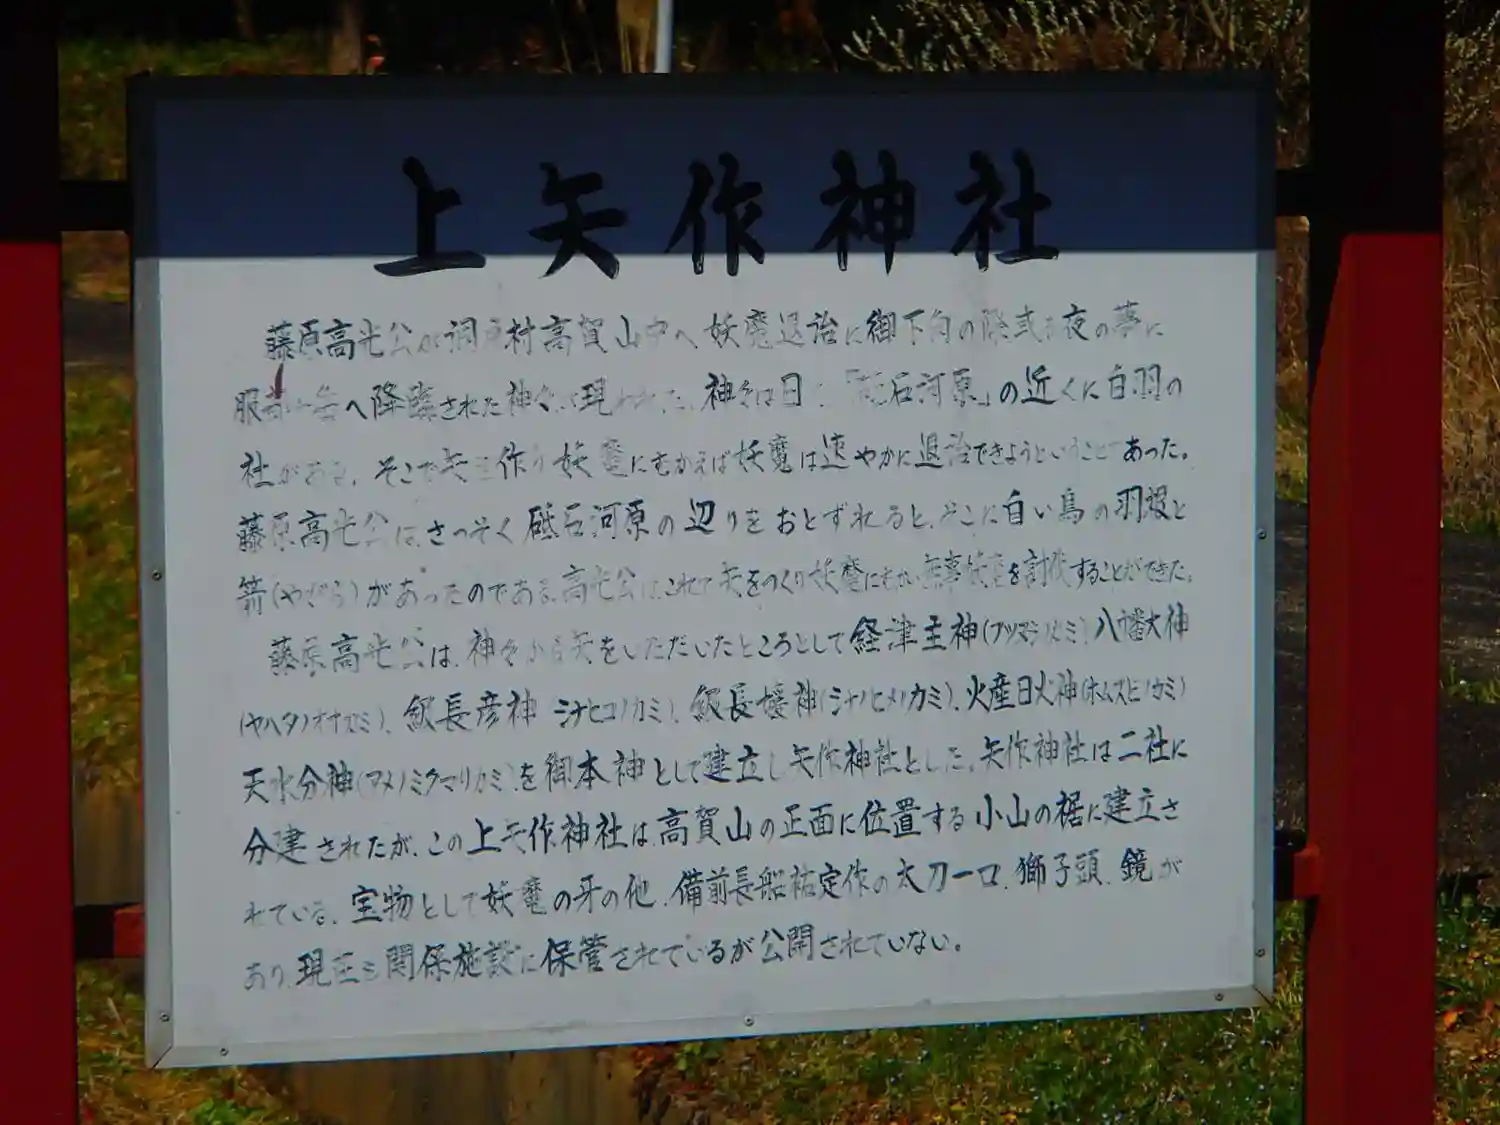 上矢作神社
藤原高光公が洞戸村高賀山中へ妖魔退治に御下向の際 夜の夢に
服部 へ降臨された神々が現われた。神々は曰く「砥石河原」の近くに白羽の
社がある。そこで矢を作り妖魔にむかえば妖魔は速やかに退治できようということであった。
藤原高光公は、さっそく砥石河原の辺りをおとずれると、そこに白い鳥の羽根と
箭(やがら)があったのである。高光公はこれで矢をつくり妖魔にむかい無事妖魔を討伐することができた。
藤原高光公は、神々から矢をいただいたところとして経津主神(フツヌシノカミ)、八幡大神
(ヤハタノオオカミ)、級長彦神(シナヒコノカミ)、級長媛神(シナノヒメノカミ)、火産日火神(ホムスヒノカミ)
天水分神(アメノミクマリカミ)を御本神として建立し矢作神社とした。矢作神社は二社に
分建されたが、この上矢作神社は、高賀山の正面に位置する小山の裾に建立さ
れている。宝物として妖魔の牙の他、備前長船祐定作の太刀一口、獅子頭、鏡が
あり、現在も関係施設に保管されているが公開されていない。